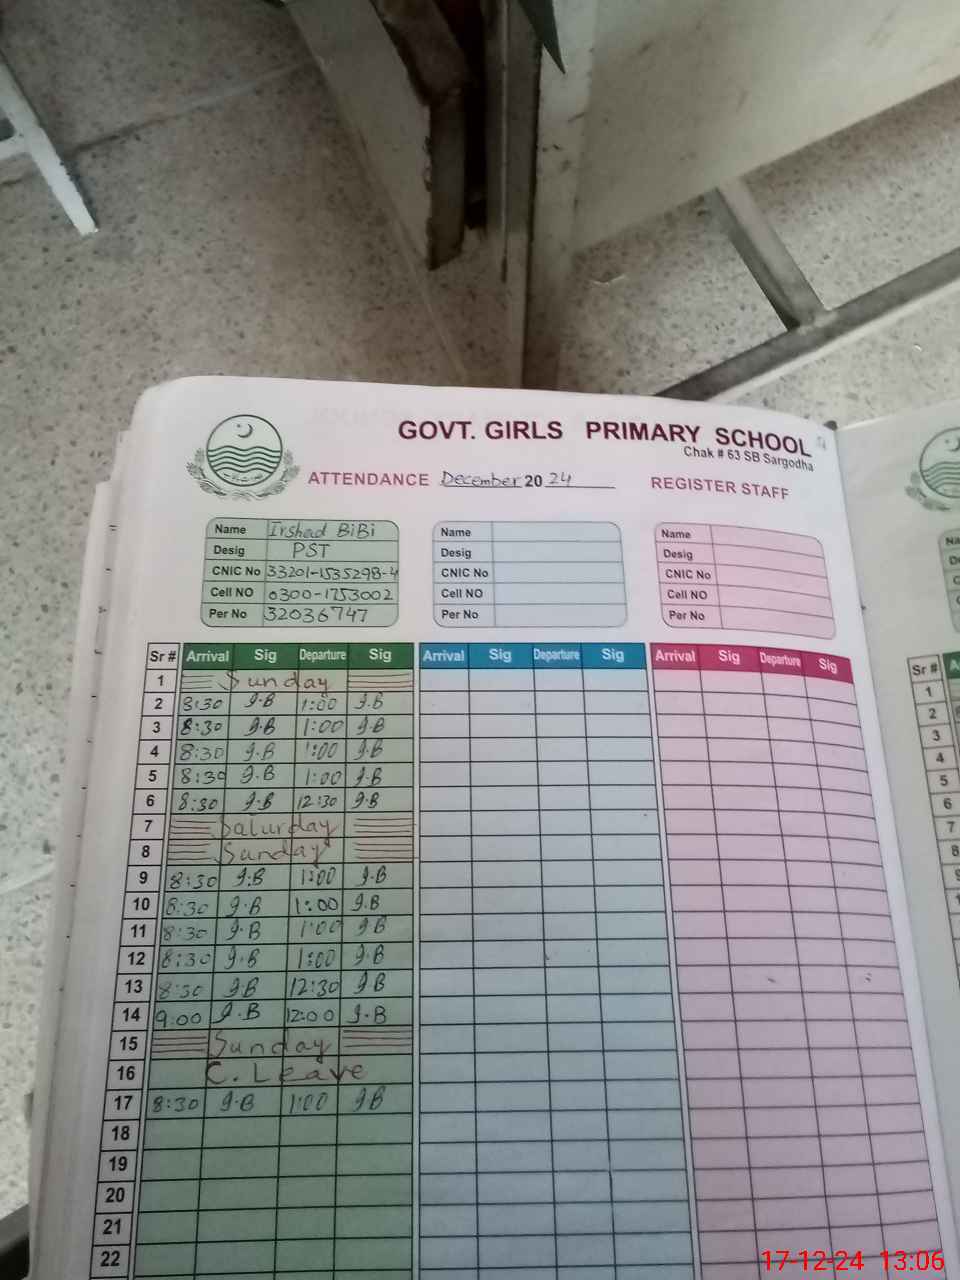 GOVT. GIRLS PRIMARY SCHOOL
Chak # 63 SB Sargodha
ATTENDANCE December 2024
REGISTER STAFF
Name Irshad BiBi
Desig PST
CNIC No 33201-1535298-4
Cell NO 0300-1753002
Per No 32036747
Name
Desig
CNIC No
Cell NO
Per No
Name
Desig
CNIC No
Cell NO
Per No
Sr # Arrival Sig Departure Sig Arrival Sig Departure Sig Arrival Sig Departure Sig
1 Sunday
2 8:30 I.B 1:00 I.B
3 8:30 I.B 1:00 I.B
4 8:30 I.B 1:00 I.B
5 8:30 I.B 1:00 I.B
6 8:30 I.B 12:30 I.B
7 Saturday
8 Sunday
9 8:30 I.B 1:00 I.B
10 8:30 I.B 1:00 I.B
11 8:30 I.B 1:00 I.B
12 8:30 I.B 1:00 I.B
13 8:30 I.B 12:30 I.B
14 9:00 I.B 12:00 I.B
15 Sunday
16 C. Leave
17 8:30 I.B 1:00 I.B
18
19
20
21
22
Sr #
1
2
3
4
5
6
7
8
17-12-24 13:06